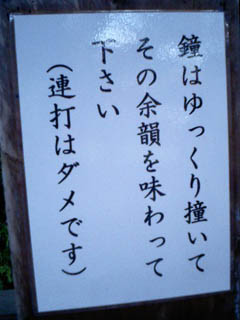 鐘はゆっくり撞いて
その余韻を味わって
下さい
(連打はダメです)